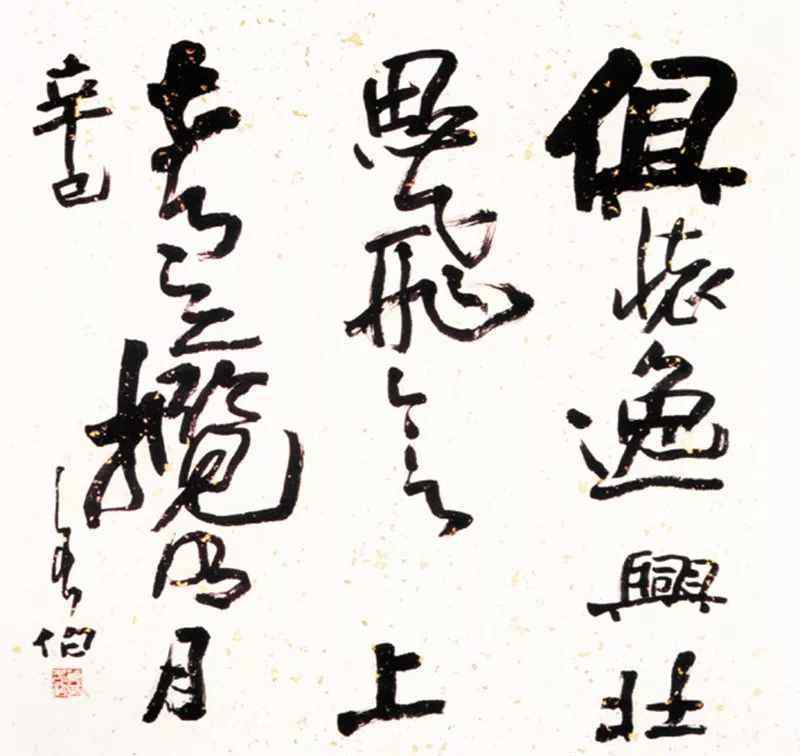 俱懷逸興壯
思飛欲上
青天攬明月
辛巳
伯